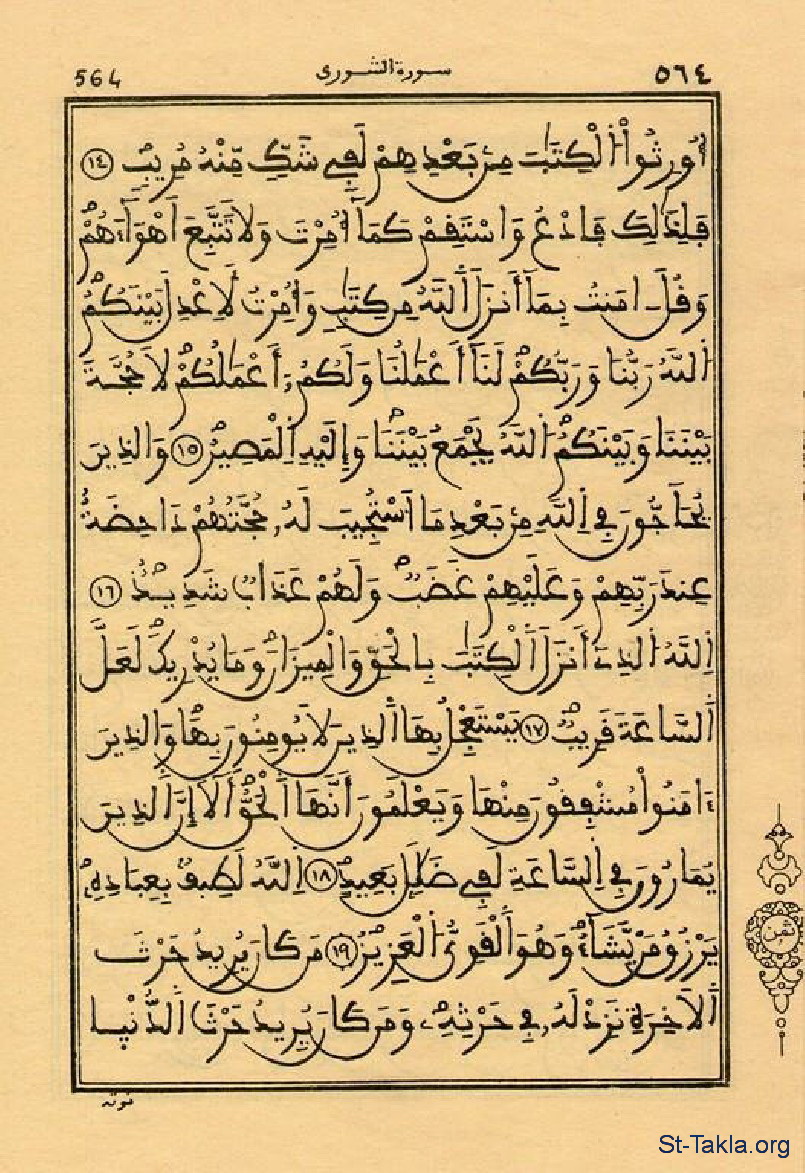 564 سورة الشورى ٥٦٤
أُورِثُواْ اُلْكِتَٰبَ مِنۢ بَعْدِهِمْ لَفِے شَكّٖ مِّنْهُ مُرِيبٖ ١٤
فَلِذَٰلِكَ فَادْعُ وَاسْتَقِمْ كَمَآ أُمِرْتَ وَلَا تَتَّبِعَ اَهْوَآءَهُمْ
وَقُلَ ـ امَنتُ بِمَآ أَنزَلَ اَللَّهُ مِن كِتَٰبٖ وَأُمِرْتُ لِأَعْدِلَ بَيْنَكُمُ
اُللَّهُ رَبُّنَا وَرَبُّكُمْ لَنَآ أَعْمَٰلُنَا وَلَكُمُۥٓ أَعْمَٰلُكُمْ لَا حُجَّةَ
بَيْنَنَا وَبَيْنَكُمُ اُللَّهُ يَجْمَعُ بَيْنَنَا وَإِلَيْهِ اِلْمَصِيرُ ١٥ وَالذِينَ
يُحَآجُّونَ فِے اِللَّهِ مِنۢ بَعْدِ مَا اَسْتُجِيبَ لَهُۥ حُجَّتُهُمْ دَاحِضَةٌ
عِندَ رَبِّهِمْ وَعَلَيْهِمْ غَضَبٞ وَلَهُمْ عَذَابٞ شَدِيدٌ ١٦
اِللَّهُ اُلذِےٓ أَنزَلَ اَلْكِتَٰبَ بِالْحَقِّ وَالْمِيزَانَ وَمَا يُدْرِيكَ لَعَلَّ
اَلسَّاعَةَ قَرِيبٞ ١٧ يَسْتَعْجِلُ بِهَا اَلذِينَ لَا يُومِنُونَ بِهَا وَالذِينَ
ءَامَنُواْ مُشْفِقُونَ مِنْهَا وَيَعْلَمُونَ أَنَّهَا اَلْحَقُّ أَلَآ إِنَّ اَلذِينَ
يُمَارُونَ فِے اِلسَّاعَةِ لَفِے ضَلَٰلِۢ بَعِيدٍ ١٨ اِللَّهُ لَطِيفُۢ بِعِبَادِهِۦ
يَرْزُقُ مَنْ يَّشَآءُ وَهُوَ اَلْقَوِيُّ اُلْعَزِيزُ ١٩ مَن كَانَ يُرِيدُ حَرْثَ
اَلَاخِرَةِ نَزِدْ لَهُۥ فِے حَرْثِهِۦ وَمَن كَانَ يُرِيدُ حَرْثَ اَلدُّنْيا
نوته
ثمن
St-Takla.org